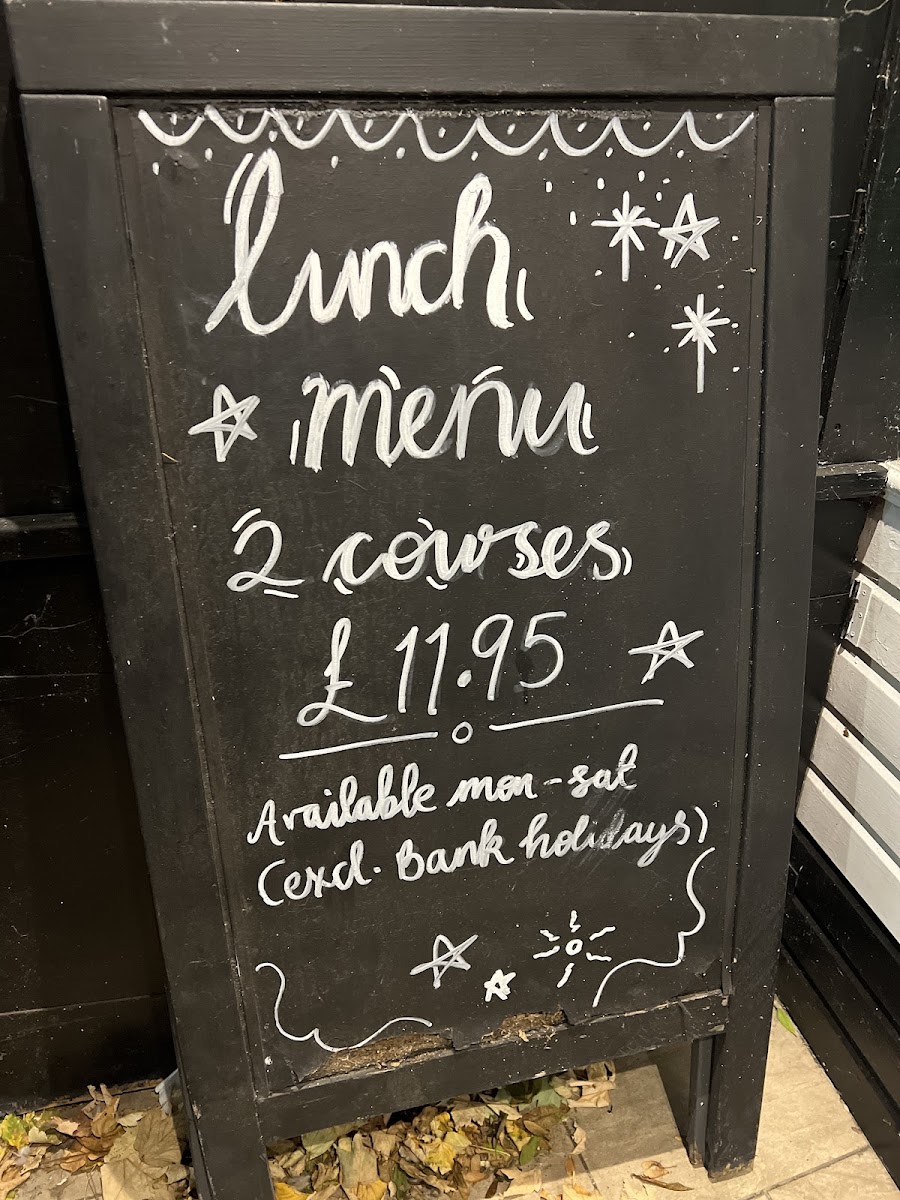 lunch
menu
2 courses
£11.95
Available mon-sat
(excl. Bank holidays)